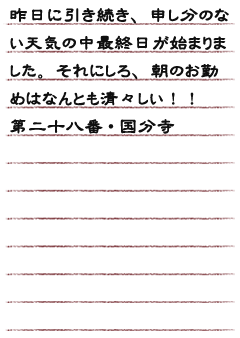 昨日に引き続き、申し分のな
い天気の中最終日が始まりま
した。それにしろ、朝のお勤
めはなんとも清々しい！！
第二十八番・国分寺